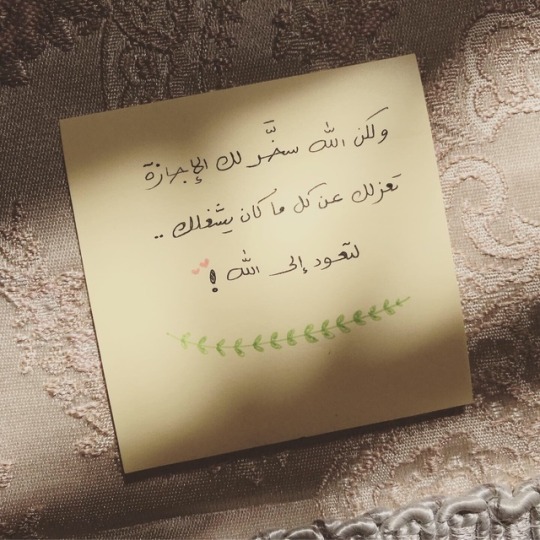 ولكن الله سخَّر لك الإجازة
تعزلك عن كل ما كان يشغلك ..
لتعود إلى الله !